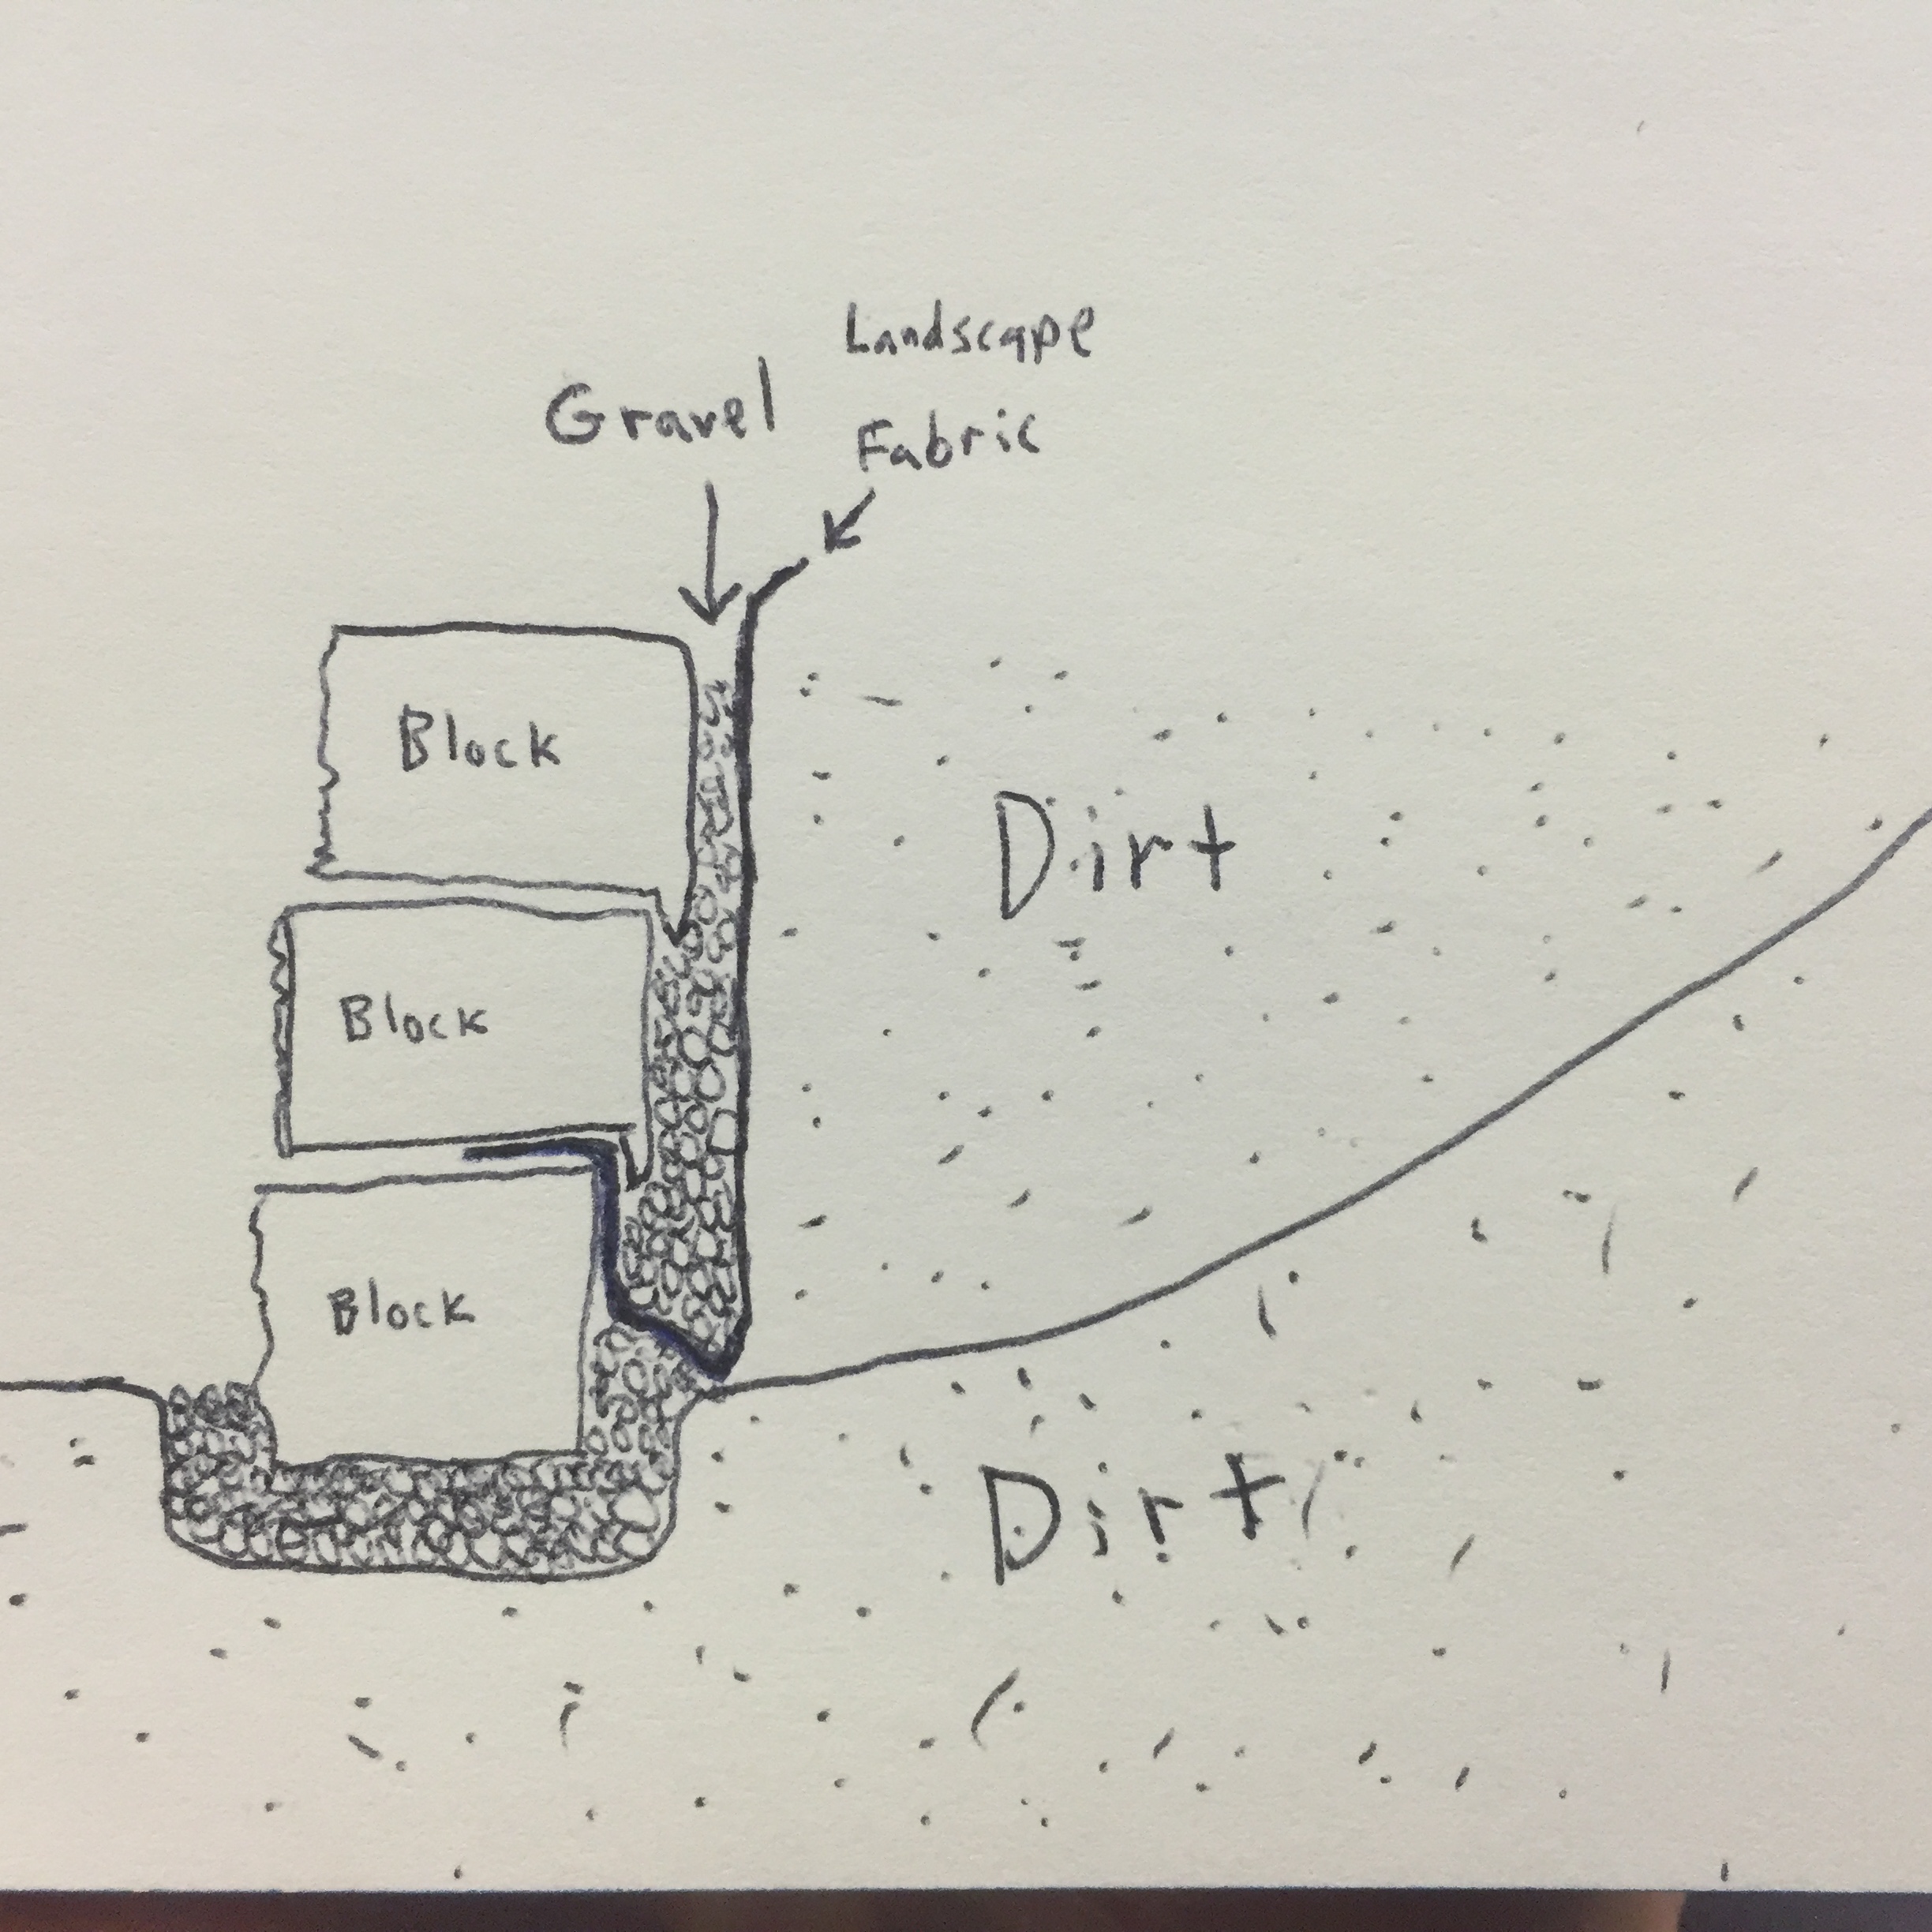 Landscape
Fabric
Gravel
Block
Dirt
Block
Block
Dirt